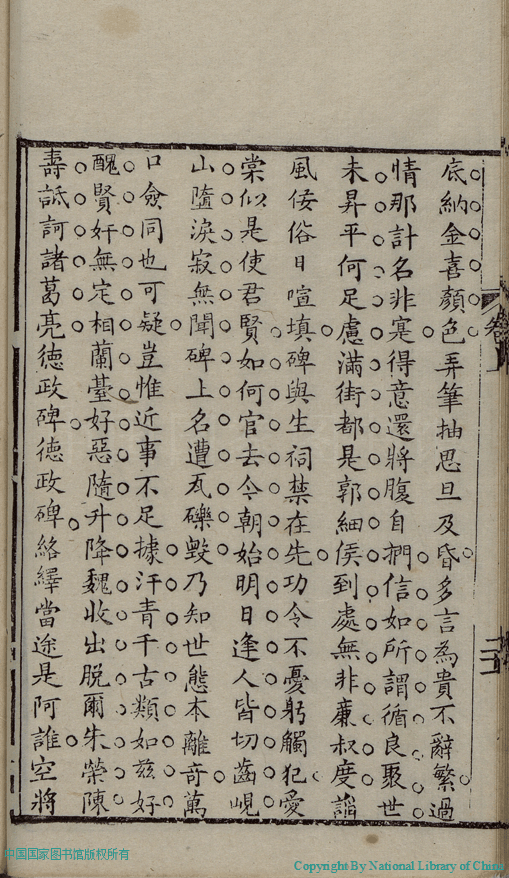 底納金喜顏色弄筆抽思旦及昏多言為貴不辭繁過
情那計名非寔得意還將腹自捫信如所謂循良聚世
未昇平何足慮滿街都是郭細侯到處無非廉叔度謟
風佞俗日喧填碑與生祠禁在先功令不憂躬觸犯愛
棠似是使君賢如何官去令朝始明日逢人皆切齒峴
山墮淚寂無聞碑上名遭瓦礫毀乃知世態本離奇萬
口僉同也可疑豈惟近事不足據汗青千古類如茲好
醜賢奸無定相蘭臺好惡隨升降魏收出脫爾朱榮陳
壽詆訶諸葛亮德政碑德政碑絡繹當途是阿誰空將
卷
二
中国国家图书馆版权所有
Copyright By National Library of China